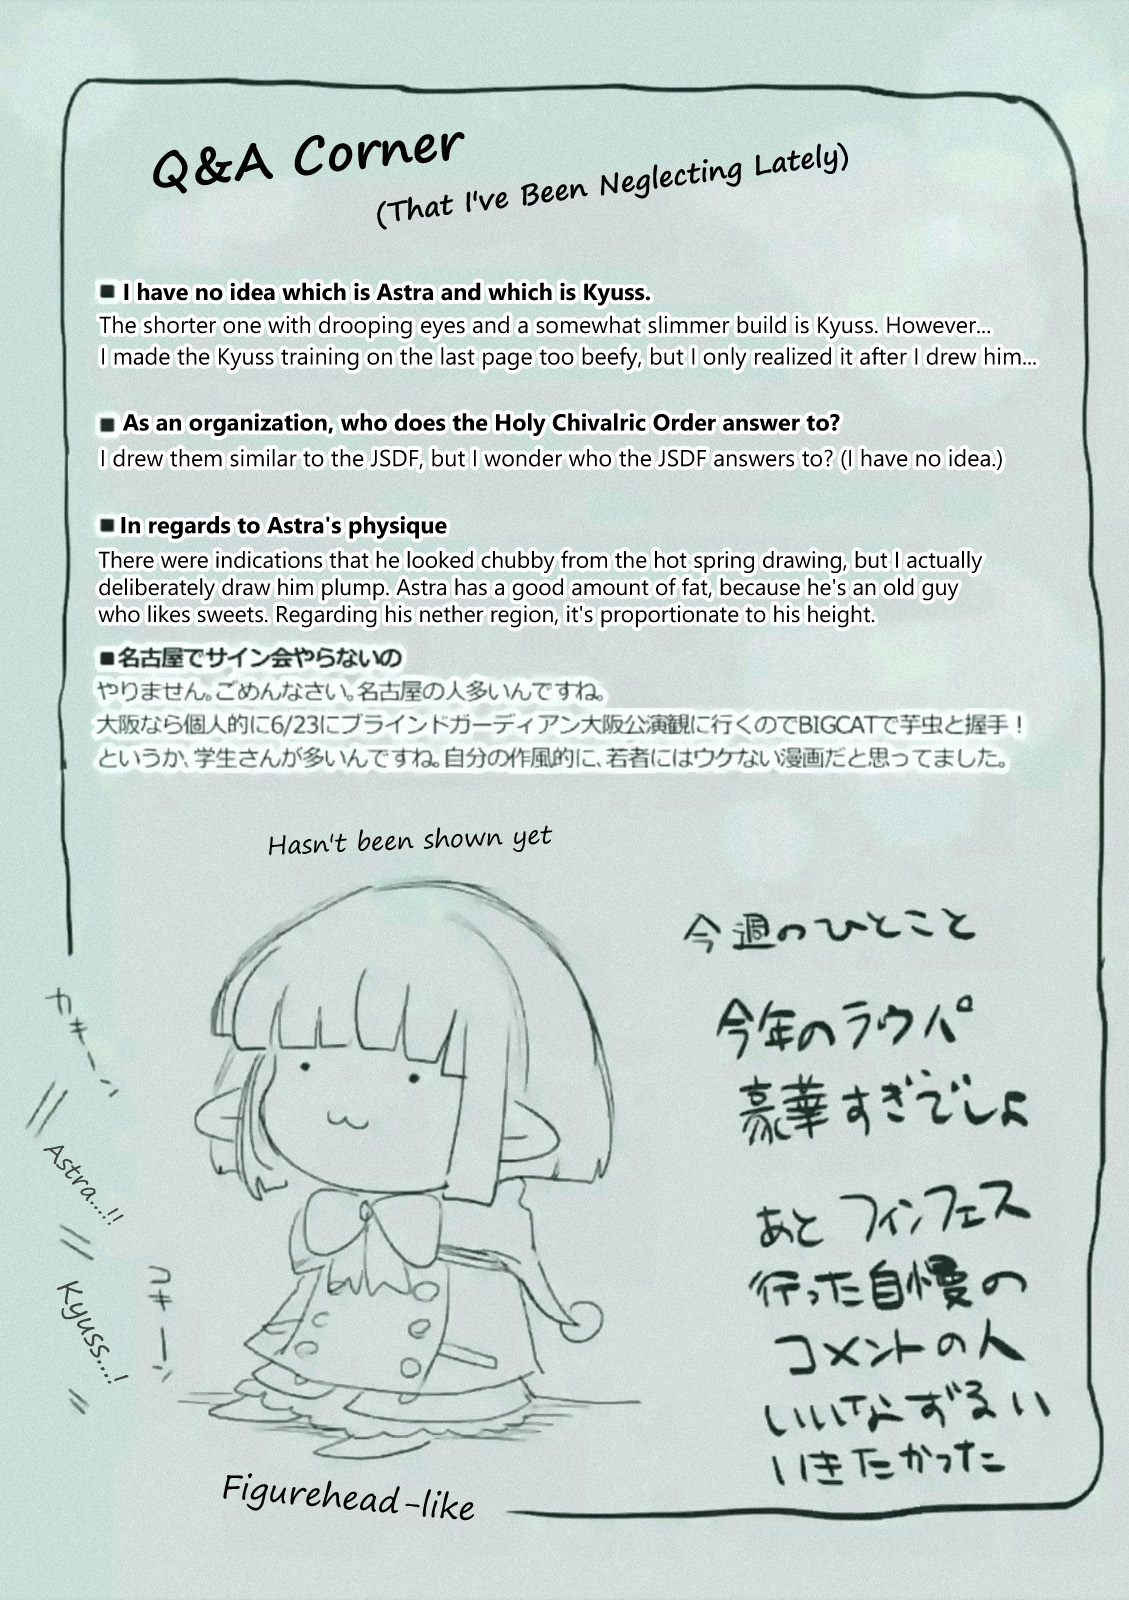 Q&A Corner
(That I've Been Neglecting Lately)
■ I have no idea which is Astra and which is Kyuss.
The shorter one with drooping eyes and a somewhat slimmer build is Kyuss. However...
I made the Kyuss training on the last page too beefy, but I only realized it after I drew him...
■ As an organization, who does the Holy Chivalric Order answer to?
I drew them similar to the JSDF, but I wonder who the JSDF answers to? (I have no idea.)
■ In regards to Astra's physique
There were indications that he looked chubby from the hot spring drawing, but I actually
deliberately draw him plump. Astra has a good amount of fat, because he's an old guy
who likes sweets. Regarding his nether region, it's proportionate to his height.
■名古屋でサイン会やらないの
やりません。ごめんなさい。名古屋の人多いんですね。
大阪なら個人的に6/23にブラインドガーディアン大阪公演観に行くのでBIGCATで芋虫と握手！
というか、学生さんが多いんですね。自分の作風的に、若者にはウケない漫画だと思ってました。
Hasn't been shown yet
今週のひとこと
今年のラウパ
豪華すぎでしょ
あと フィンフェス
行った自慢の
コメントの人
いいなずるい
いきたかった
カキーン
Astra...!!
Kyuss...!
コキーン
Figurehead-like